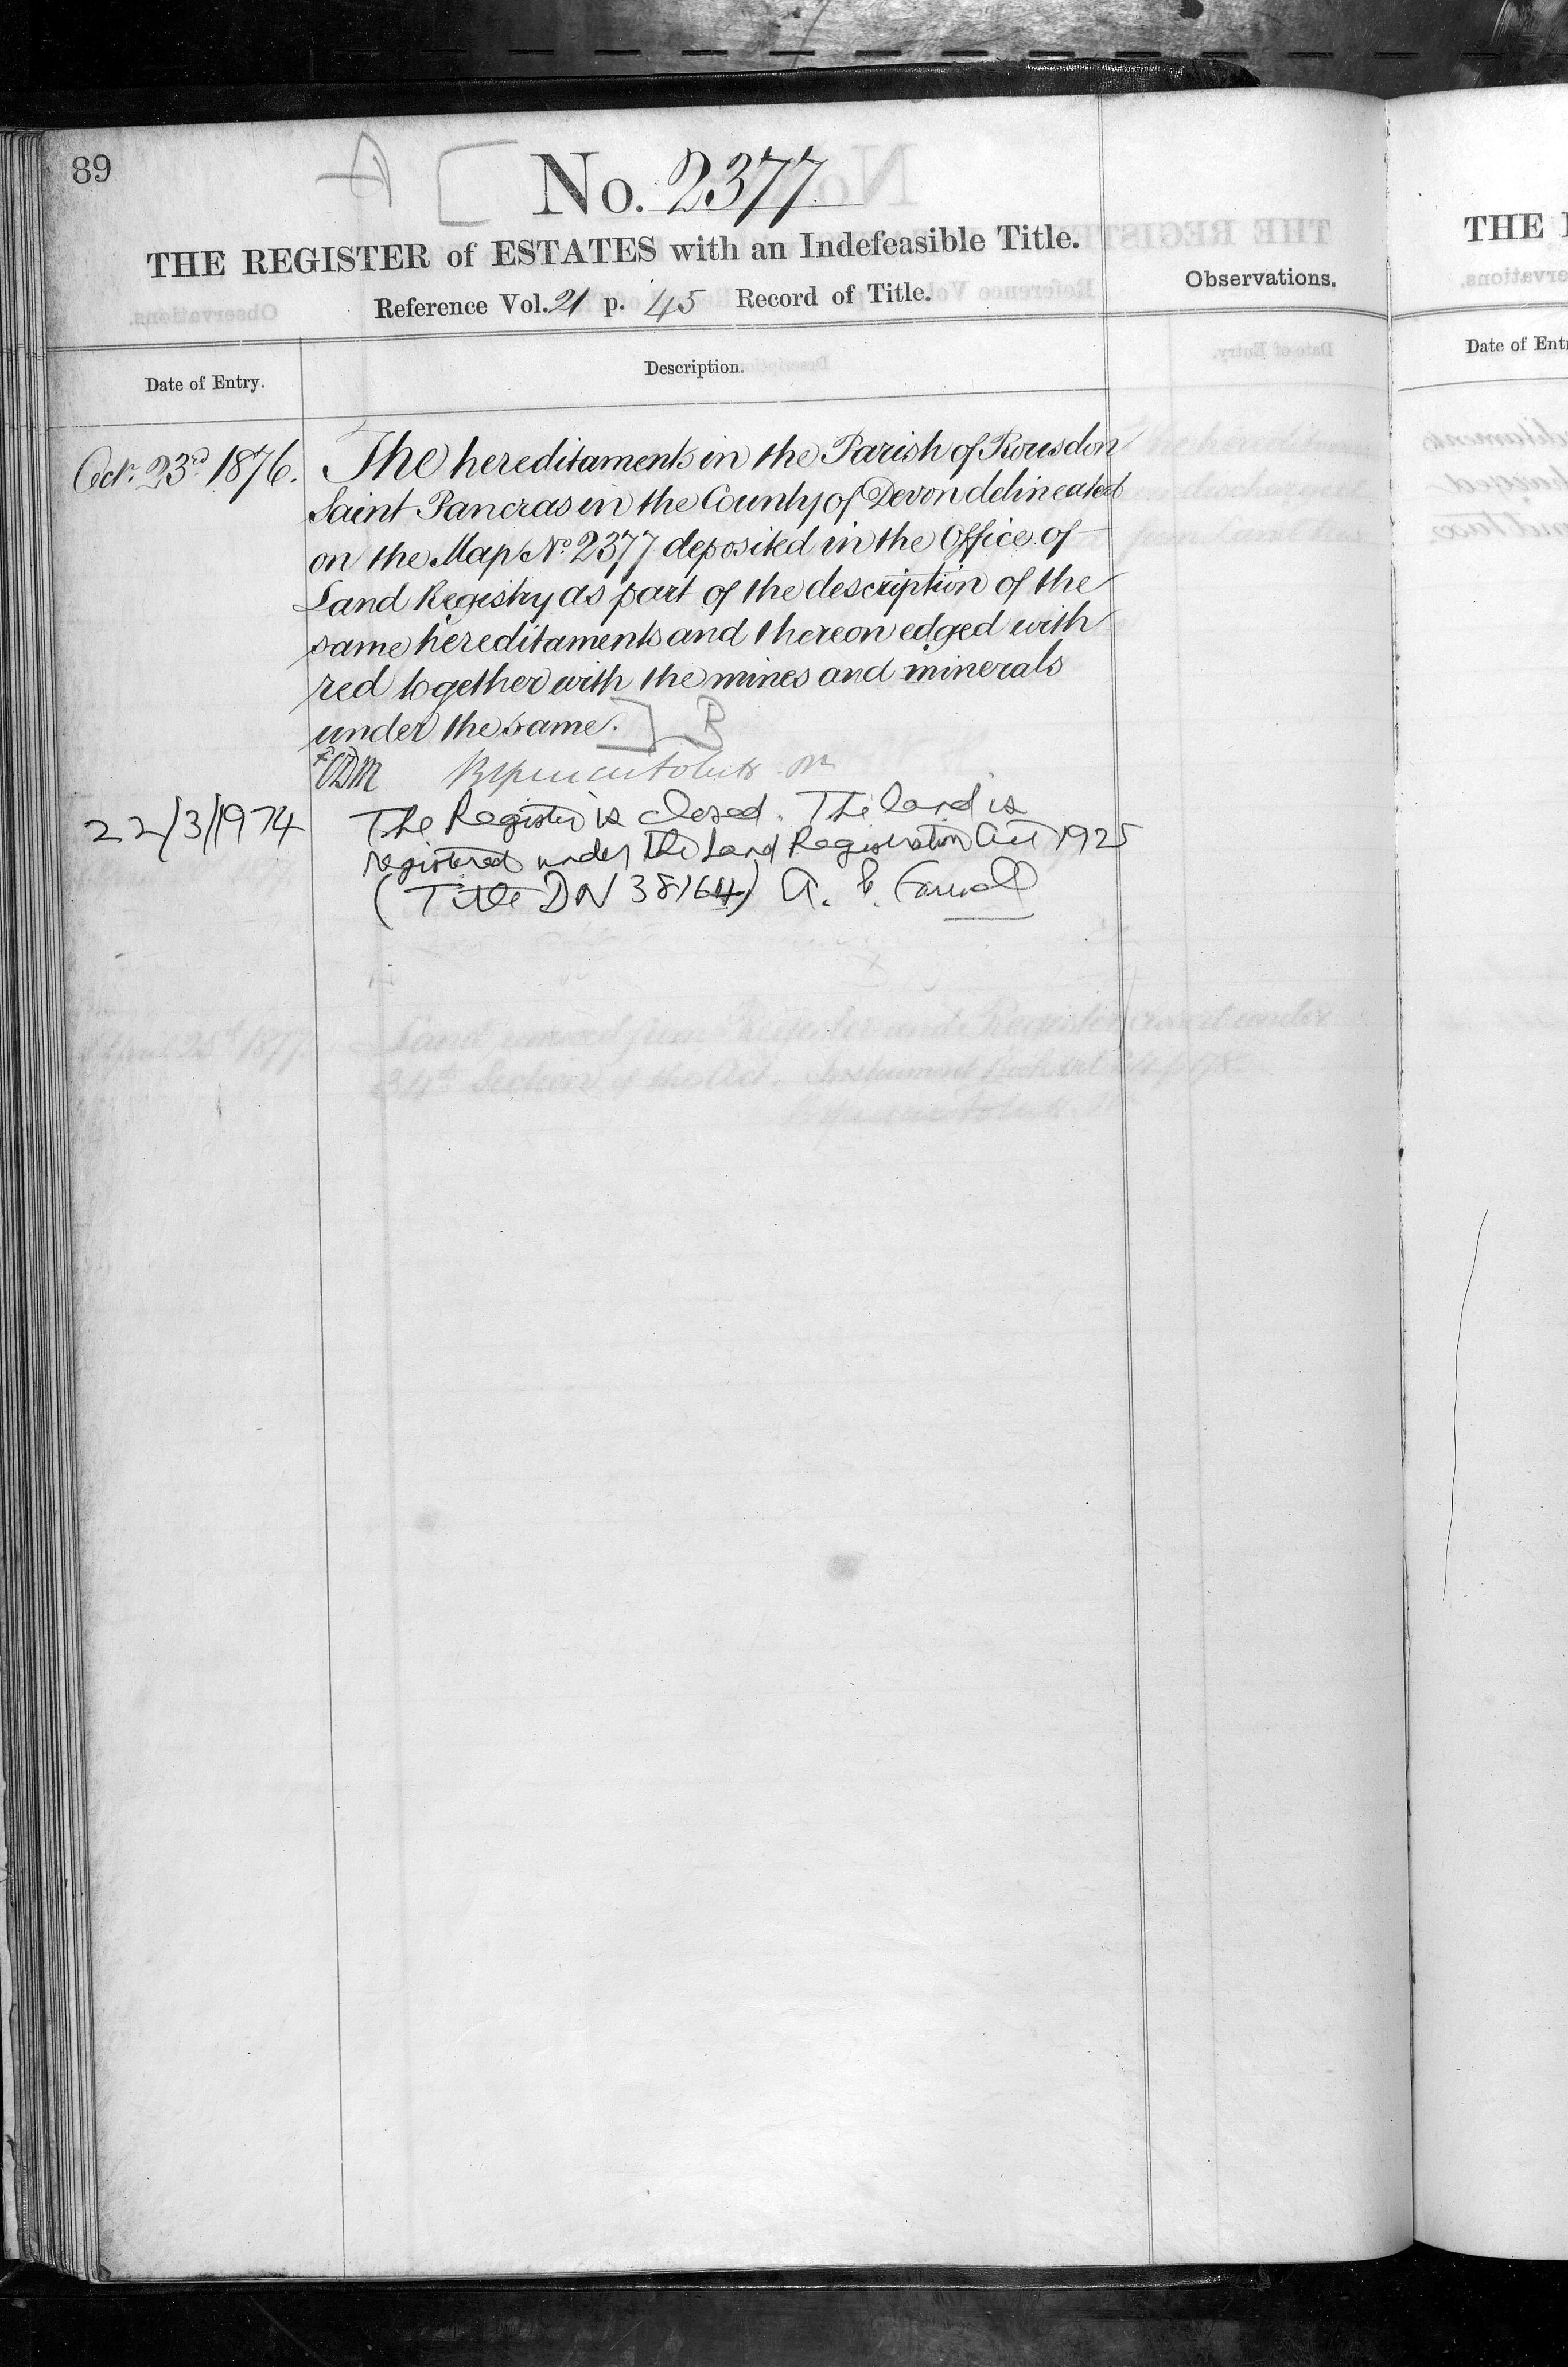 89
A [
No. 2377
THE REGISTER of ESTATES with an Indefeasible Title.
Reference Vol. 21 p. 45 Record of Title.
Observations.
Date of Entry.
Description.
Octr. 23rd 1876.
The hereditaments in the Parish of Rousdon
Saint Pancras in the County of Devon delineated
on the Map No 2377 deposited in the Office of
Land Registry as part of the description of the
same hereditaments and thereon edged with
red together with the mines and minerals
under the same. ] B
22/3/1974
The Register is closed. The land is
registered under the Land Registration Act 1925
(Title DN 38164) A.
THE
Date of Ent
April 25th 1877.
Land removed from Register and Register closed under
34th Section of the Act. Instrument Book Vol